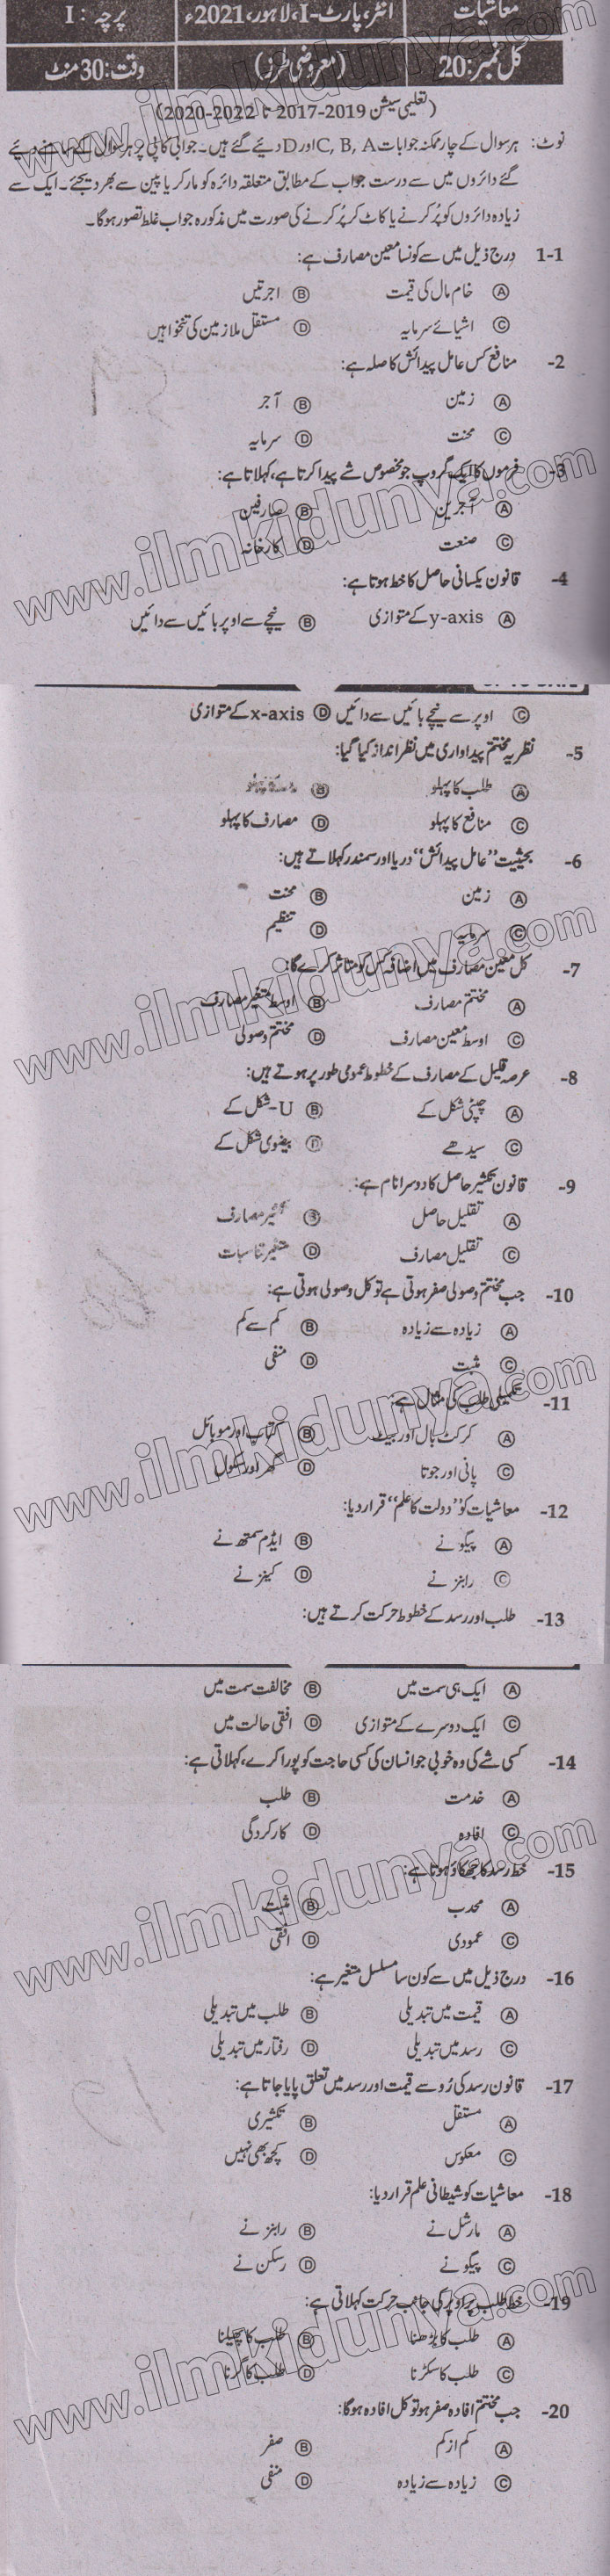 معاشیات انٹر، پارٹ-I، لاہور، 2021ء پرچہ: I
کل نمبر: 20 (معروضی طرز) وقت: 30 منٹ
(تعلیمی سیشن 2019-2017 تا 2022-2020)
نوٹ: ہر سوال کے چار ممکنہ جوابات C, B, A اور D دیئے گئے ہیں۔ جوابی کاپی پر ہر سوال کے سامنے دیئے
گئے دائروں میں سے درست جواب کے مطابق متعلقہ دائرہ کو مارکر یا پین سے بھر دیجئے۔ ایک سے
زیادہ دائروں کو پُر کرنے یا کاٹ کر پُر کرنے کی صورت میں مذکورہ جواب غلط تصور ہوگا۔
1-1 درج ذیل میں سے کونسا معین مصارف ہے:
Ⓐ خام مال کی قیمت Ⓑ اجرتیں
Ⓒ اشیائے سرمایہ Ⓓ مستقل ملازمین کی تنخواہیں
2- منافع کس عامل پیدائش کا صلہ ہے:
Ⓐ زمین Ⓑ آجر
Ⓒ محنت Ⓓ سرمایہ
3- فرموں کا ایک گروپ جو مخصوص شے پیدا کرتا ہے، کہلاتا ہے:
Ⓐ آجرین Ⓑ صارفین
Ⓒ صنعت Ⓓ کارخانہ
4- قانون یکسانی حاصل کا خط ہوتا ہے:
Ⓐ y-axis کے متوازی Ⓑ نیچے سے اوپر بائیں سے دائیں
Ⓒ اوپر سے نیچے بائیں سے دائیں Ⓓ x-axis کے متوازی
5- نظریہ مختتم پیداواری میں نظر انداز کیا گیا:
Ⓐ طلب کا پہلو Ⓑ کا پہلو
Ⓒ منافع کا پہلو Ⓓ مصارف کا پہلو
6- بحیثیت "عامل پیدائش" دریا اور سمندر کہلاتے ہیں:
Ⓐ زمین Ⓑ محنت
Ⓒ سرمایہ Ⓓ تنظیم
7- کل معین مصارف میں اضافہ کس کو متاثر کرے گا:
Ⓐ مختتم مصارف Ⓑ اوسط متغیر مصارف
Ⓒ اوسط معین مصارف Ⓓ مختتم وصولی
8- عرصہ قلیل کے مصارف کے خطوط عمومی طور پر ہوتے ہیں:
Ⓐ چپٹی شکل کے Ⓑ U-شکل کے
Ⓒ سیدھے Ⓓ بیضوی شکل کے
9- قانون تکثیر حاصل کا دوسرا نام ہے:
Ⓐ تقلیل حاصل Ⓑ مصارف
Ⓒ تقلیل مصارف Ⓓ متغیر تناسبات
10- جب مختتم وصولی صفر ہوتی ہے تو کل وصولی ہوتی ہے:
Ⓐ زیادہ سے زیادہ Ⓑ کم سے کم
Ⓒ مثبت Ⓓ منفی
11- تکمیلی طلب کی مثال ہے:
Ⓐ کرکٹ بال اور بیٹ Ⓑ کتاب اور موبائل
Ⓒ پانی اور جوتا Ⓓ گھر اور سکول
12- معاشیات کو "دولت کا علم" قرار دیا:
Ⓐ پیگو نے Ⓑ ایڈم سمتھ نے
Ⓒ رابنز نے Ⓓ کینز نے
13- طلب اور رسد کے خطوط حرکت کرتے ہیں:
Ⓐ ایک ہی سمت میں Ⓑ مخالفت سمت میں
Ⓒ ایک دوسرے کے متوازی Ⓓ افقی حالت میں
14- کسی شے کی وہ خوبی جو انسان کی کسی حاجت کو پورا کرے، کہلاتی ہے:
Ⓐ خدمت Ⓑ طلب
Ⓒ افادہ Ⓓ کارکردگی
15- خط رسد کا جھکاؤ ہوتا ہے:
Ⓐ محدب Ⓑ مثبت
Ⓒ عمودی Ⓓ افقی
16- درج ذیل میں سے کون سا مسلسل متغیر ہے:
Ⓐ قیمت میں تبدیلی Ⓑ طلب میں تبدیلی
Ⓒ رسد میں تبدیلی Ⓓ رفتار میں تبدیلی
17- قانون رسد کی رُو سے قیمت اور رسد میں تعلق پایا جاتا ہے:
Ⓐ مستقل Ⓑ تکثیری
Ⓒ معکوس Ⓓ کچھ بھی نہیں
18- معاشیات کو شیطانی علم قرار دیا:
Ⓐ مارشل نے Ⓑ رابنز نے
Ⓒ پیگو نے Ⓓ رسکن نے
19- خط طلب پر اوپر کی جانب حرکت کہلاتی ہے:
Ⓐ طلب کا بڑھنا Ⓑ طلب کا پھیلنا
Ⓒ طلب کا سکڑنا Ⓓ طلب کا گرنا
20- جب مختتم افادہ صفر ہو تو کل افادہ ہوگا:
Ⓐ کم از کم Ⓑ صفر
Ⓒ زیادہ سے زیادہ Ⓓ منفی
www.ilmkidunya.com
www.ilmkidunya.com
www.ilmkidunya.com
www.ilmkidunya.com
www.ilmkidunya.com
www.ilmkidunya.com